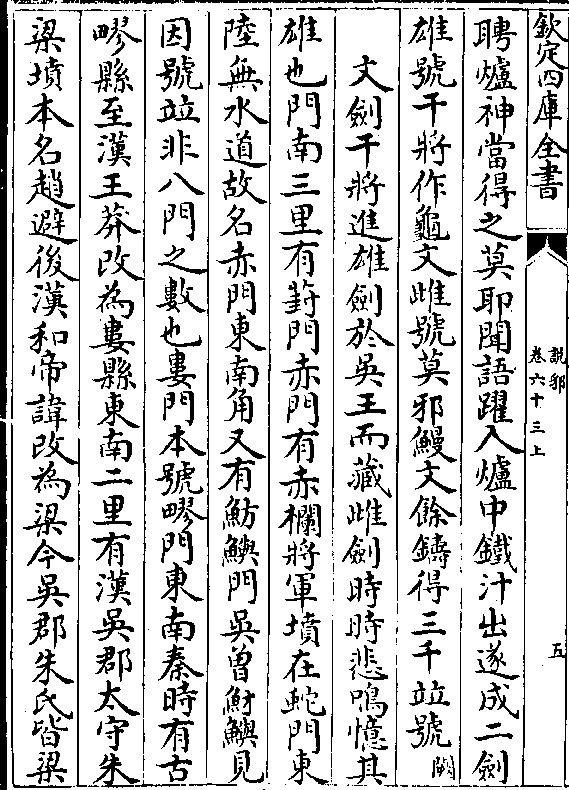 欽定四庫全書
說郛
卷六十三上
五
聘爐神當得之莫耶聞語躍入爐中鐵汁出遂成二劍
雄號干將作龜文雌號莫邪鰻文餘鑄得三千竝號闕
文劍干將進雄劍於吳王而藏雌劍時時悲鳴憶其
雄也門南三里有葑門赤門有赤欄將軍墳在蛇門東
陸無水道故名赤門東南角又有魴鱮門吳曾魴鱮見
因號竝非八門之數也婁門本號疁門東南秦時有古
疁縣至漢王莽改為婁縣東南二里有漢吳郡太守朱
梁墳本名趙避後漢和帝諱改為梁今吳郡朱氏皆梁